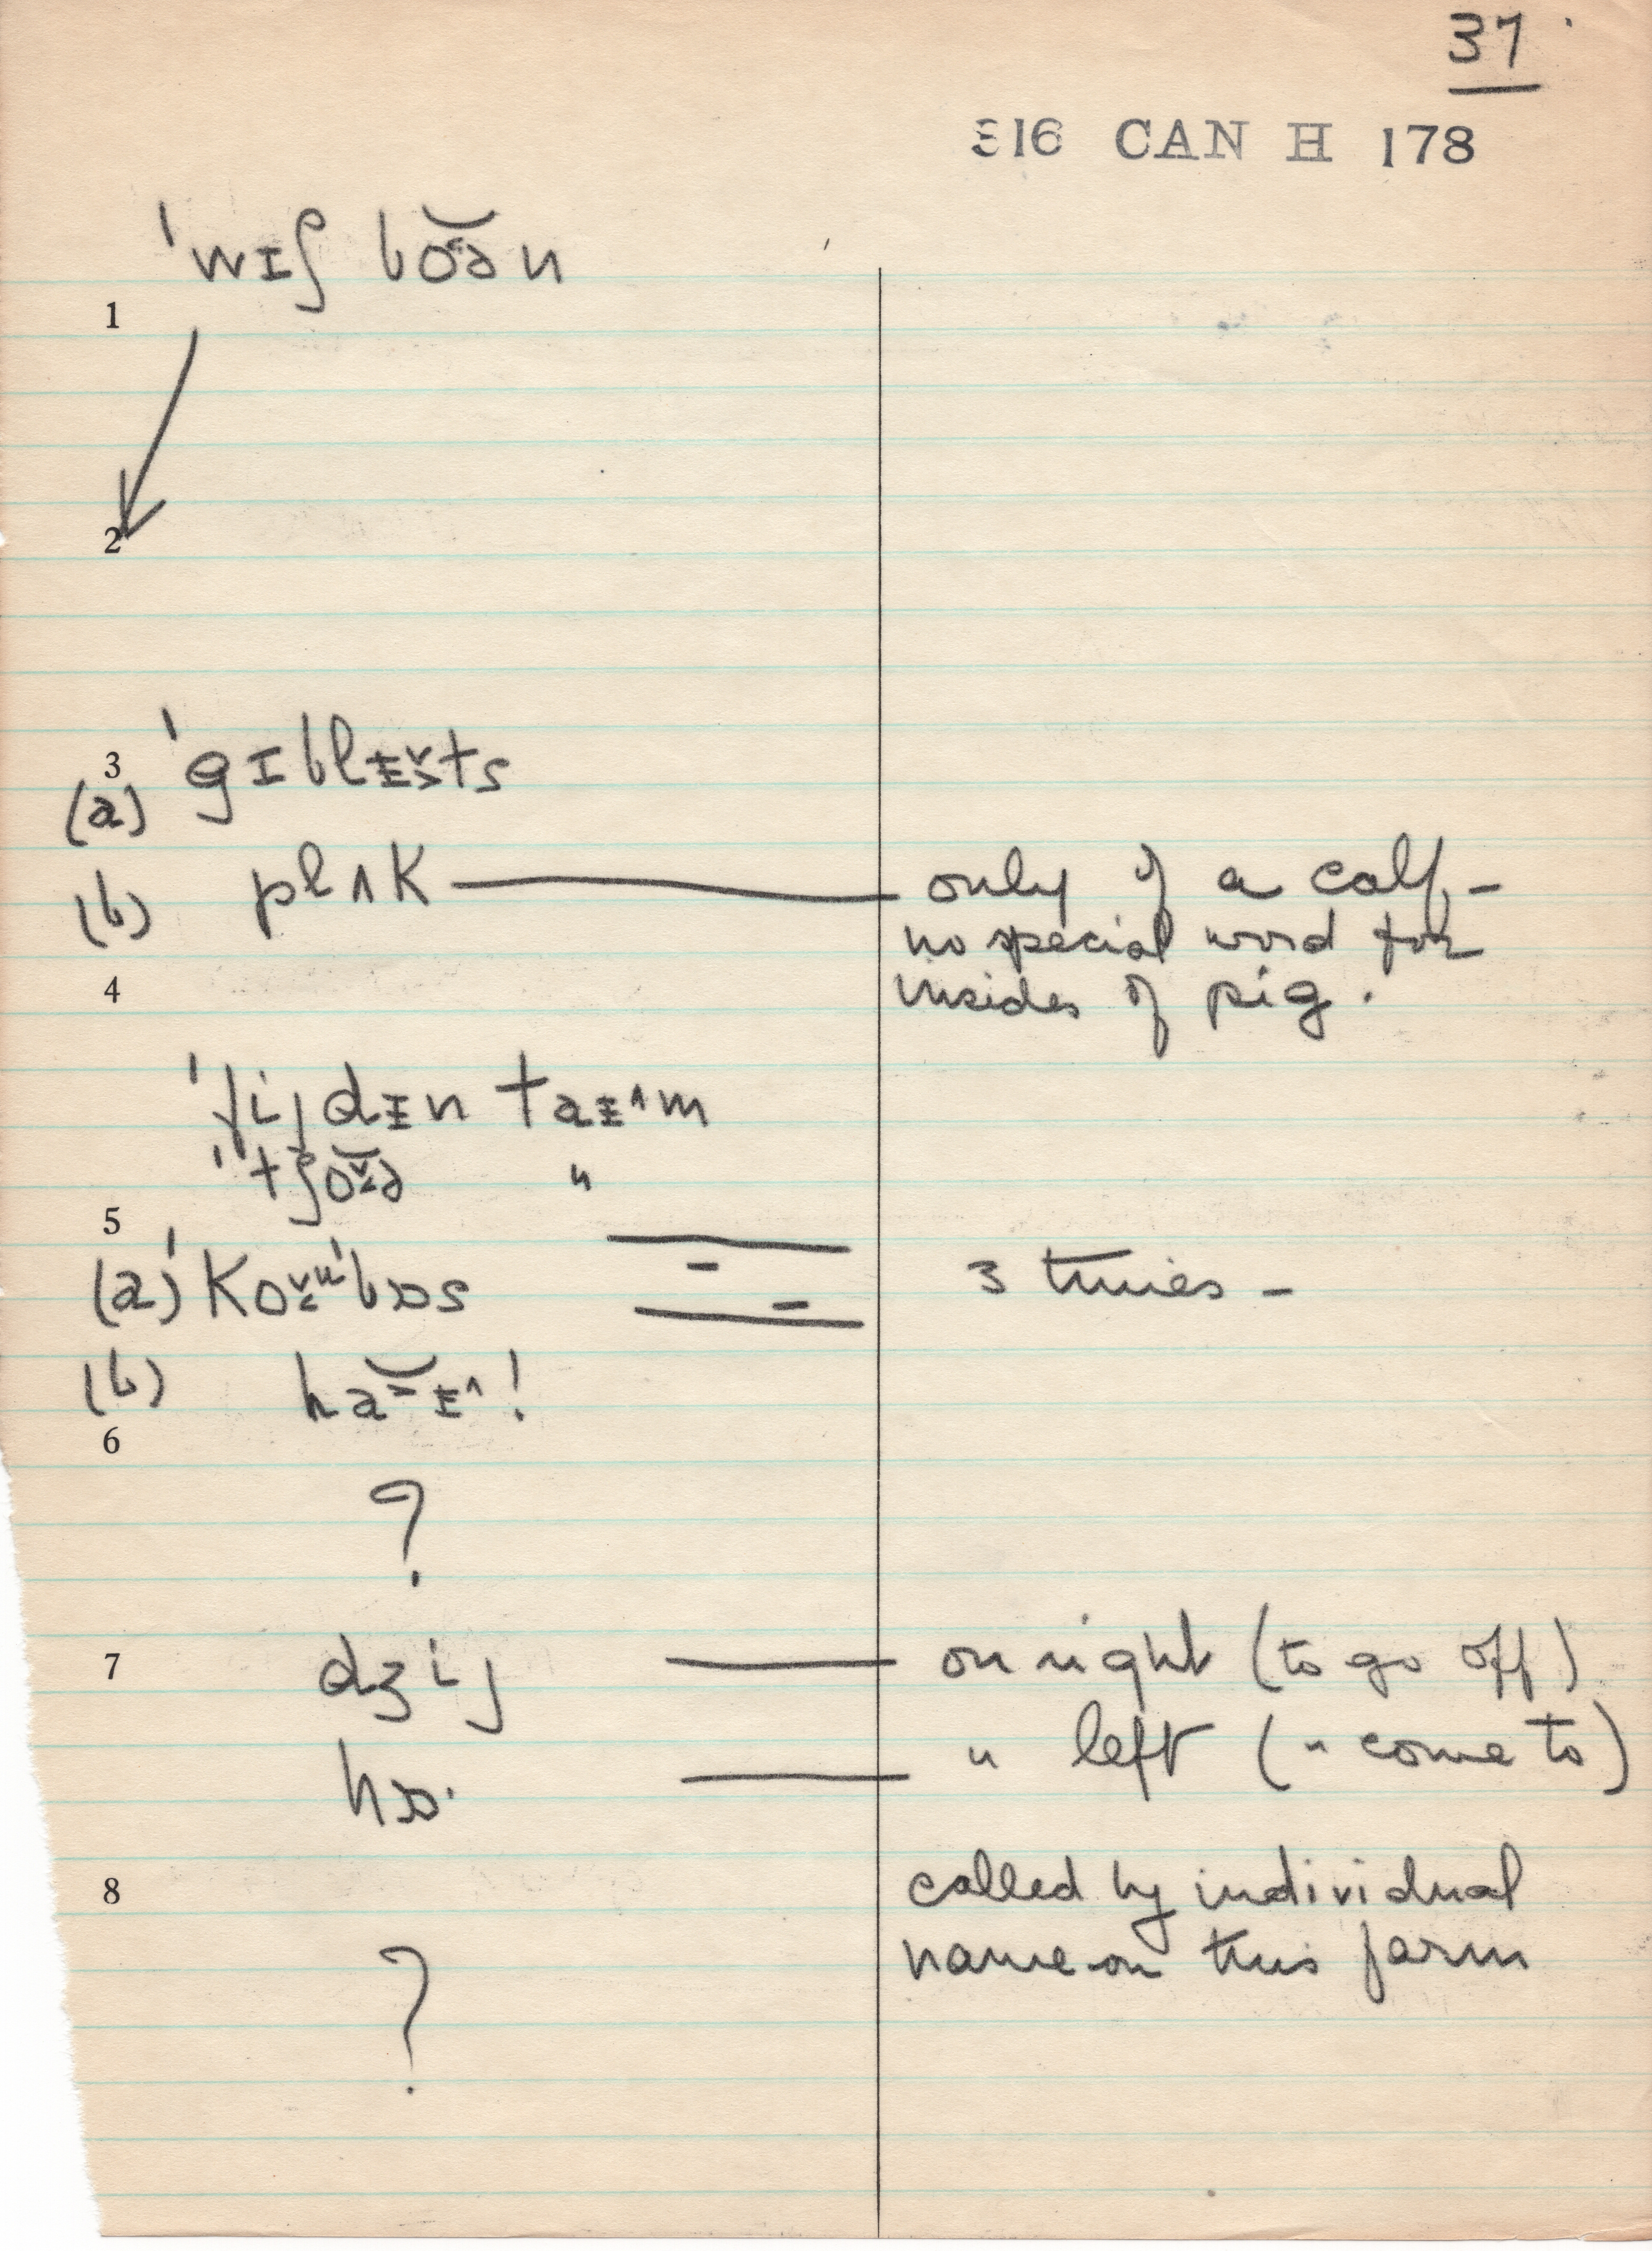 37
316 CAN H 178
ˈwɪʃ bo̯ən
1
2
3 ˈgɪblɪ̵ts
(a)
(b) plʌk — only of a calf, –
no special word for
4 insides of pig.
ˈfijdɪ̵n taɪ̵^m
ˈtʃoə "
5
(a) ˈkoʊˈbɔs 3 times –
(b) haɪ̵^!
6
?
7 dʒij — on right (to go off)
hɔ· — " left (" come to)
8 called by individual
name on this farm
?